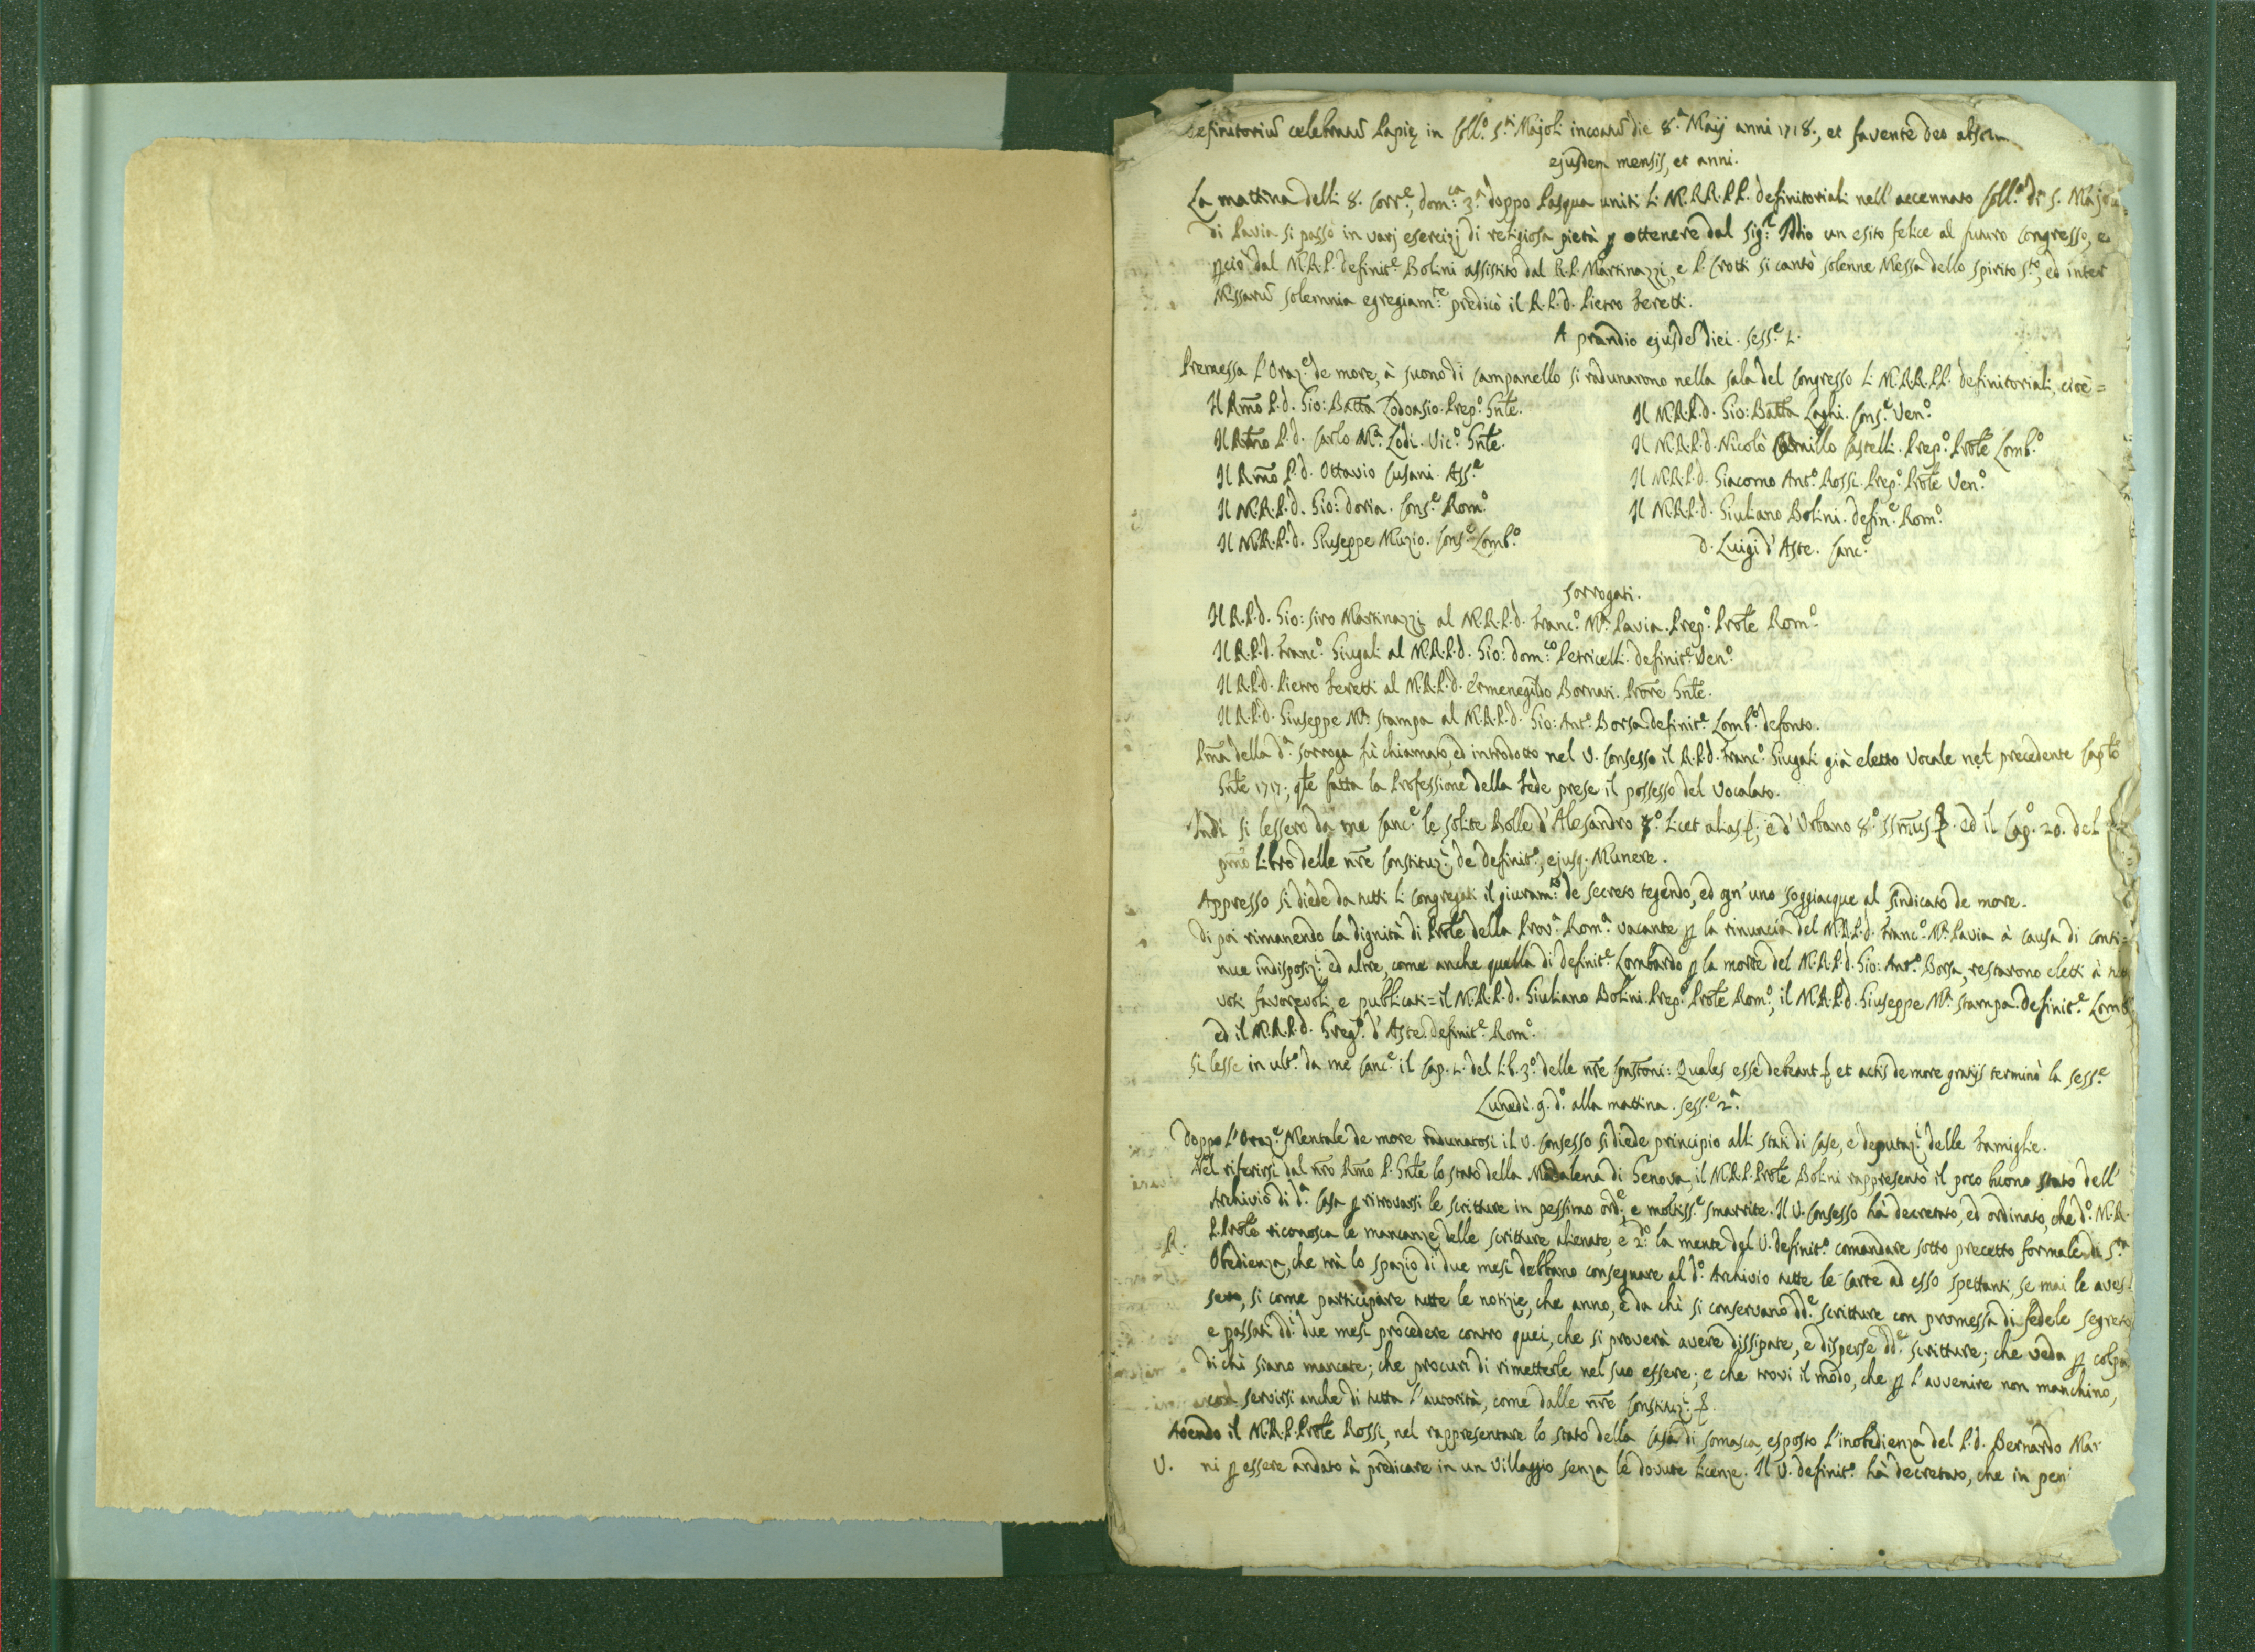 Definitoriũ celebratũ Papię in Coll.º S.ti Majoli incoatũ die 8.ª Maij anni 1718., et favente deo absolu
ejusdem mensis, et anni.
La mattina delli 8. Corr.e, dom.ca 3.ª doppo Pasqua uniti li M.RR.PP. definitoriali nell' accennato Coll.º di S. Majolo
di Pavia si passò in varj esercizj di religiosa pietà p ottenere dal Sig.r Iddio un esito felice al futuro Congresso, e
pciò dal M.R.P. definit.e Bolini assistito dal R.P. Martinazzi, e P. Crotti si cantò solenne Messa dello Spirito S.to, ed inter
Missarũ solemnia egregiam.te predicò il R.P.d. Pietro Feretti.
A prandio ejusdẽ diei. Sess.e 1.
Premessa l'Oraz.e de more, à suono di Campanello si radunarono nella sala del Congresso li M.RR.PP. definitoriali, cioè =
Il Rm̃o P.d. Gio: Batt̃a Lodovasio. Prep.º Gñle.
Il Rm̃o P.d. Carlo M.ª Lodi. Vic.º Gñle.
Il Rm̃o P.d. Ottavio Cusani. Ass.e
Il M.R.P.d. Gio: Doria. Cons.e Rom.º
Il M.R.P.d. Giuseppe Muzio. Cons.e Lomb.º
Il M.R.P.d. Gio: Batt̃a Laghi. Cons.e Ven.º
Il M.R.P.d. Nicolò Camillo Castelli. Prep.º Prõle Lomb.º
Il M.R.P.d. Giacomo Ant.º Rossi. Prep.º Prõle Ven.º
Il M.R.P.d. Giuliano Bolini. defin.e Rom.º
d. Luigi d'Aste. Canc.e
Sorrogati.
Il R.P.d. Gio: Siro Martinazzi al M.R.P.d. Franc.º M.ª Pavia. Prep.º Prõle Rom.º
Il R.P.d. Franc.º Giugali al M.R.P.d. Gio: dom.co Petricelli. definit.e Ven.º
Il R.P.d. Pietro Feretti al M.R.P.d. Ermenegildo Bornati. Prõre Gñle.
Il R.P.d. Giuseppe M.ª Stampa al M.R.P.d. Gio: Ant.º Borsa definit.e Lomb.º defonto.
Pm̃a della d.ª sorroga fù chiamato, ed introdotto nel V. Consesso il R.P.d. Franc.º Giugali già eletto Vocale nel precedente Cap̃lo
Gñle 1717; q̃le fatta la Professione della Fede prese il possesso del Vocalato.
Indi si lessero da me Canc.e le solite Bolle d'Alesandro 7.º Licet alias &; e d'Urbano 8.º SSm̃us &. ed il Cap.º 20. del
pm̃o Libro delle nr̃e Constituz.i, de definit.e, ejusq. Munere.
Appresso si diede da tutti li Congregati il giuram.to de secreto tegendo, ed ogn'uno soggiacque al Sindicato de more.
Di poi rimanendo la dignità di Prõle della Prov.ª Rom.ª vacante p la rinuncia del M.R.P.d. Franc.º M.ª Pavia à causa di conti=
nue indisposiz.i ed altre, come anche quella di definit.e Lombardo p la morte del M.R.P.d. Gio: Ant.º Borsa, restarono eletti à tutti
voti favorevoli, e pubblicati = il M.R.P.d. Giuliano Bolini. Prep.º Prõle Rom.º; il M.R.P.d. Giuseppe M.ª Stampa. definit.e Lomb.º
ed il M.R.P.d. Greg.º d'Aste. definit.e Rom.º
Si lesse in ult.º da me Canc.e il Cap. 1. del Lib. 3.º delle nr̃e Constõni: Quales esse debeant & et actis de more gratijs terminò la Sess.e
Lunedì. 9. d.º alla mattina. Sess.e 2.ª
Doppo l'Oraz.e Mentale de more radunatosi il V. Consesso si diede principio alli Stati di Case, e deputaz.i delle Famiglie.
Nel riferirsi dal nr̃o Rm̃o P. Gñle lo stato della Madalena di Genova, il M.R.P. Prõle Bolini rappresentò il poco buono stato dell'
Archivio di d.ª Casa p ritrovarsi le scritture in pessimo ord.e, e moltiss.e smarrite. Il V. Consesso hà decretato, ed ordinato, che d.º M.R.
R. P. Prõle riconosca le mancanze delle scritture alienate, e 2.do la mente del V. definit.º comandare sotto precetto formale di S.ta
Obedienza, che trà lo spazio di due mesi debbano consegnare al d.º Archivio tutte le carte ad esso spettanti, se mai le aves=
sero, si come participare tutte le notizie, che anno, e da chi si conservano dd.e scritture con promessa di fedele segreto,
e passati dd.i due mesi procedere contro quei, che si proverà avere dissipate, e disperse dd.e scritture; che veda p colpa
di chi siano mancate; che procuri di rimetterle nel suo essere; e che trovi il modo, che p l'avvenire non manchino,
servirsi anche di tutta l'autorità, come dalle nr̃e Constituz.i &.
Avendo il M.R.P. Prõle Rossi, nel rappresentare lo stato della Casa di Somasca, esposto l'inobedienza del P.d. Bernardo Mar
V. ni p essere andato à predicare in un Villaggio senza le dovute licenze. Il V. definit.º hà decretato, che in peni